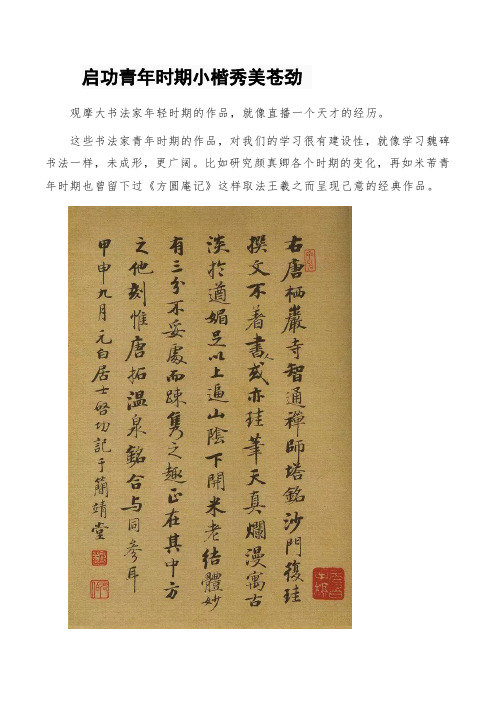 启功青年时期小楷秀美苍劲
观摩大书法家年轻时期的作品，就像直播一个天才的经历。
这些书法家青年时期的作品，对我们的学习很有建设性，就像学习魏碑
书法一样，未成形，更广阔。比如研究颜真卿各个时期的变化，再如米芾青
年时期也曾留下过《方圆庵记》这样取法王羲之而呈现己意的经典作品。
右唐栖巖寺智通禪師塔銘沙門復珪
撰文不著書人或亦珪筆天真爛漫寓古
淡於遒媚足以上逼山陰下開米老結體妙
有三分不妥處而踈雋之趣正在其中方
之他刻惟唐拓温泉銘合与同參耳
甲申九月元白居士啓功記于簡靖堂